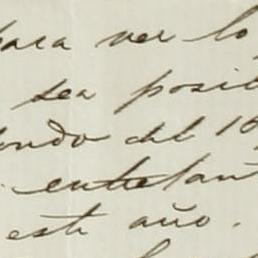 para ver lo
sea posi
ondo del 1
entretan
este año.